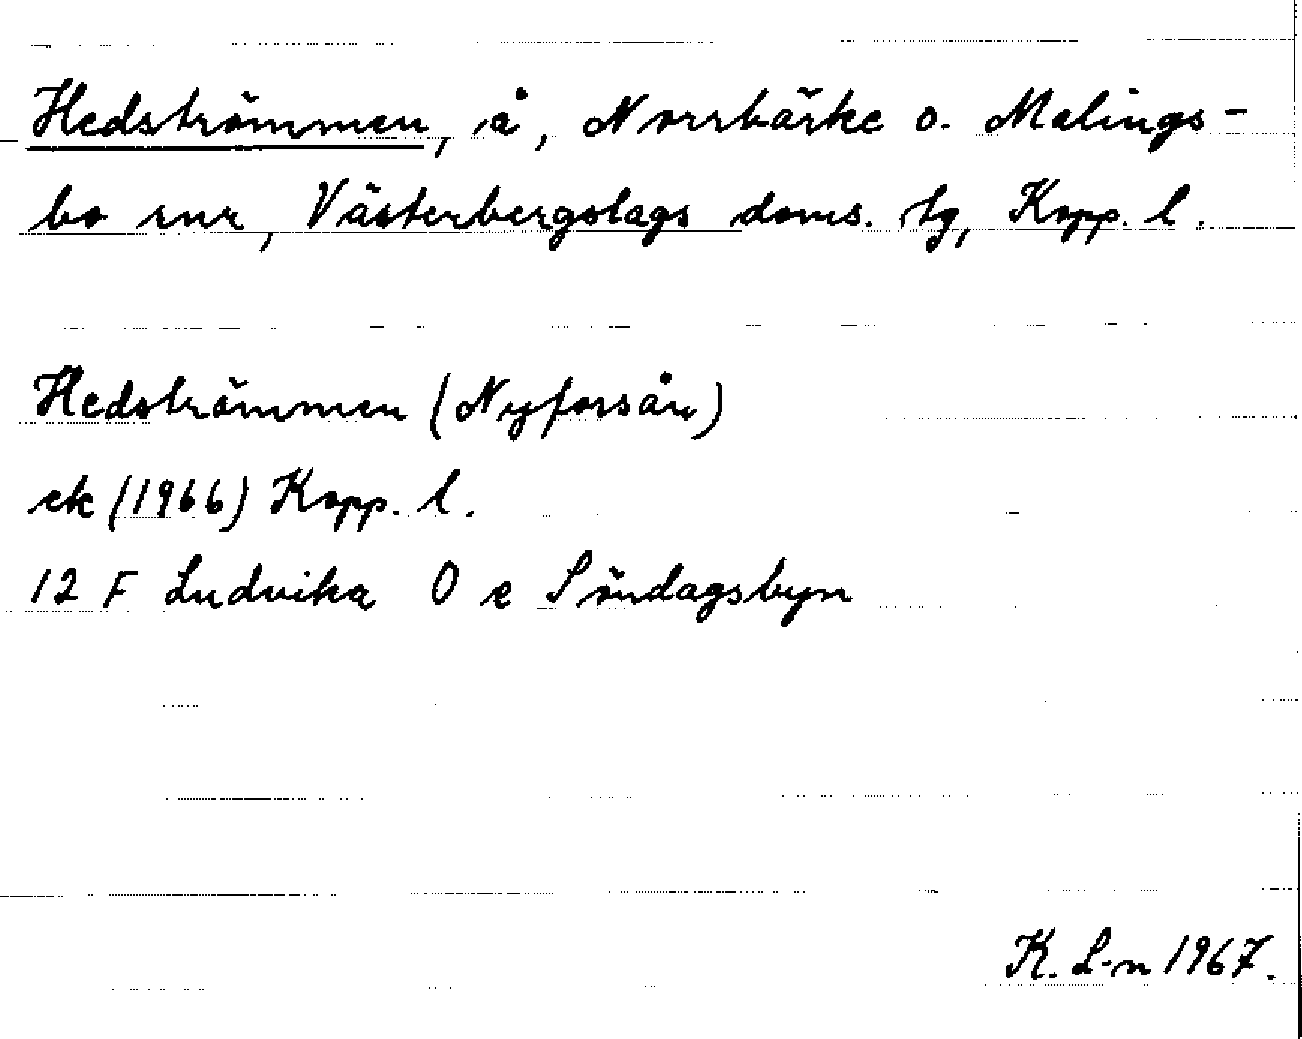 Hedströmmen, å, Norrbärke o. Malings-
bo snr, Västerbergslags doms. tg, Kopp. l.
Hedströmmen (Nyforsån)
ek (1966) Kopp. l.
12 F Ludvika O e Söndagsbyn
K. L-n 1967.